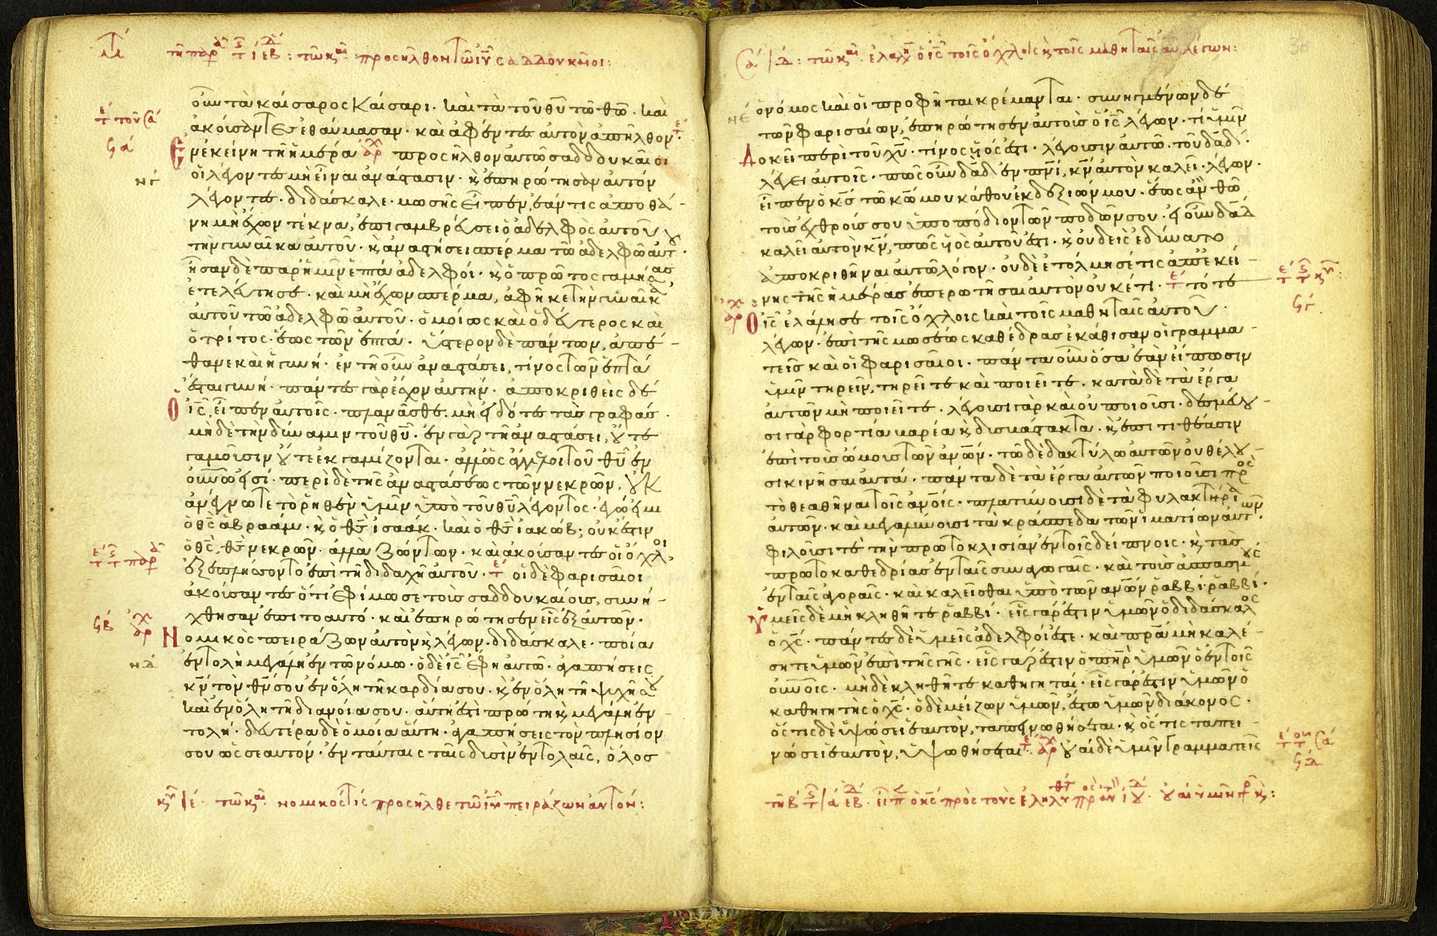 τῆ παρ ς τ ι ε β : τῶ κ αι προσῆλθον τῶ ιῦ σαδδουκαῖοι:
οὖν τὰ καίσαρος Καίσαρι· καὶ τὰ τοῦ θῦ τῶ θῶ· καὶ
ἀκούσαντες ἐθαύμασαν· καὶ ἀφέντες αὐτὸν ἀπῆλθον·
Ἐν ἐκείνη τῆ ἡμέρα ἀρχ προσῆλθον αὐτῶ σαδδουκαῖοι
οἱ λέγοντες μὴ εἶναι ἀνάστασιν· κ ἐπηρώτησαν αὐτὸν
λέγοντες· διδάσκαλε· μωσῆς εἶπεν, ἐάν τις ἀποθά-
νη μὴ ἔχων τέκνα, ἐπιγαμβρεύσει ὁ ἀδελφὸς αὐτοῦ
τὴν γυναῖκα αὐτοῦ· κ ἀναστήσει σπέρμα τῶ ἀδελφῶ αὐτοῦ·
ἦσαν δὲ παρ' ἡμῖν ἑπτὰ ἀδελφοί· κ ὁ πρῶτος γαμήσας
ἐτελεύτησε· καὶ μὴ ἔχων σπέρμα, ἀφῆκε τὴν γυναῖκα
αὐτοῦ τῶ ἀδελφῶ αὐτοῦ· ὁμοίως καὶ ὁ δεύτερος καὶ
ὁ τρίτος· ἕως τῶν ἑπτά· ὕστερον δὲ πάντων, ἀπέ-
θανε καὶ ἡ γυνή· ἐν τῆ οὖν ἀναστάσει, τίνος τῶν ἑπτὰ
ἔσται γυνή· πάντες γὰρ ἔσχον αὐτήν· ἀποκριθεὶς δὲ
ὁ ις, εἶπεν αὐτοῖς· πλανᾶσθε· μὴ εἰδότες τὰς γραφάς·
μὴ δὲ τὴν δύναμιν τοῦ θῦ· ἐν γὰρ τῆ ἀναστάσει, οὔτε
γαμοῦσιν οὔτε ἐκγαμίζονται· ἀλλ' ὡς ἄγγελοι τοῦ θῦ ἐν
οὐνῶ εἰσί· περὶ δὲ τῆς ἀναστάσεως τῶν νεκρῶν, οὐκ
ἀνέγνωτε τὸ ῥηθὲν ὑμῖν ὑπὸ τοῦ θῦ λέγοντος· ἐγώ εἰμι
ὁ θς ἀβραάμ· κ ὁ θς ἰσαάκ· καὶ ὁ θς ἰακώβ; οὐκ ἔστιν
ὁ θς, θς νεκρῶν· ἀλλὰ ζώντων· καὶ ἀκούσαντες οἱ ὄχλοι,
ἐξεπλήσσοντο ἐπὶ τῆ διδαχῆ αὐτοῦ· οἱ δὲ φαρισαῖοι
ἀκούσαντες ὅτι ἐφίμωσε τοὺς σαδδουκαίους, συνή-
χθησαν ἐπιτοαυτό· καὶ ἐπηρώτησεν εἷς ἐξ αὐτῶν·
Νομικὸς πειράζων αὐτὸν κ λέγων· διδάσκαλε· ποία
ἐντολὴ μεγάλη ἐν τῶ νόμω· ὁ δὲ ις ἔφη αὐτῶ· ἀγαπήσεις
κν τὸν θν σου ἐν ὅλη τῆ καρδία σου· κ ἐν ὅλη τῆ ψυχῆ σου
καὶ ἐν ὅλη τῆ διανοία σου· αὕτη ἐστὶ πρώτη κ μεγάλη ἐν-
τολή· δευτέρα δὲ ὁμοία αὕτη· ἀγαπήσεις τὸν πλησίον
σου ὡς σεαυτόν· ἐν ταύταις ταῖς δυσὶν ἐντολαῖς, ὅλος
νομικός τις προσῆλθε τῶ ιῦ πειράζων αὐτόν:
τῶ κ αι ἐλάλη ὁ ις τοῖς ὄχλοις κ τοῖς μαθηταῖς αὐ λέγων:
ὁ νόμος καὶ οἱ προφῆται κρέμανται· συνηγμένων δὲ
τῶν φαρισαίων, ἐπηρώτησεν αὐτοὺς ὁ ις λέγων· τί ὑμῖν
Δοκεῖ περὶ τοῦ χῦ· τίνος υἱός ἐστι· λέγουσιν αὐτῶ· τοῦ δαδ·
λέγει αὐτοῖς· πῶς οὖν δαδ ἐν πνι, κν αὐτὸν καλεῖ· λέγων·
εἶπεν ὁ κς τῶ κω μου κάθου ἐκ δεξιῶν μου· ἕως ἂν θῶ
τοὺς ἐχθρούς σου ὑποπόδιον τῶν ποδῶν σου· εἰ οὖν δαδ
καλεῖ αὐτὸν κν, πῶς υἱὸς αὐτοῦ ἐστι· κ οὐδεὶς ἐδύνατο
ἀποκριθῆναι αὐτῶ λόγον· οὐδὲ ἐτόλμησέ τις ἀπ' ἐκεί-
νης τῆς ἡμέρας ἐπερωτῆσαι αὐτὸν οὐκέτι· τότε
Ὁ ις ἐλάλησε τοῖς ὄχλοις καὶ τοῖς μαθηταῖς αὐτοῦ·
λέγων· ἐπὶ τῆς μωσέως καθέδρας ἐκάθισαν οἱ γραμμα-
τεῖς καὶ οἱ φαρισαῖοι· πάντα οὖν ὅσα ἐὰν εἴπωσιν
ὑμῖν τηρεῖν, τηρεῖτε καὶ ποιεῖτε· κατὰ δὲ τὰ ἔργα
αὐτῶν μὴ ποιεῖτε· λέγουσι γὰρ καὶ οὐ ποιοῦσι· δεσμεύου-
σι γὰρ φορτία βαρέα κ δυσβάστακτα· κ ἐπιτιθέασιν
ἐπὶ τοὺς ὤμους τῶν ἀνῶν· τῶ δὲ δακτύλω αὐτῶν οὐ θέλου-
σι κινῆσαι αὐτά· πάντα δὲ τὰ ἔργα αὐτῶν ποιοῦσι πρὸς
τὸ θεαθῆναι τοῖς ἀνοις· πλατύνουσι δὲ τὰ φυλακτήρια
αὐτῶν· καὶ μεγαλύνουσι τὰ κράσπεδα τῶν ἱματίων αὐτῶν,
φιλοῦσί τε τὴν πρωτοκλισίαν ἐν τοῖς δείπνοις· κ τὰς
πρωτοκαθεδρίας ἐν ταῖς συναγωγαῖς· καὶ τοὺς ἀσπασμοὺς
ἐν ταῖς ἀγοραῖς· καὶ καλεῖσθαι ὑπὸ τῶν ἀνῶν ῥαββὶ ῥαββί·
Ὑμεῖς δὲ μὴ κληθῆτε ῥαββί· εἷς γάρ ἐστιν ὑμῶν ὁ διδάσκαλος
ὁ χς· πάντες δὲ ὑμεῖς ἀδελφοί ἐστε· καὶ πρα μὴ καλέ-
σητε ὑμῶν ἐπὶ τῆς γῆς· εἷς γάρ ἐστιν ὁ πηρ ὑμῶν ὁ ἐν τοῖς
οὐνοῖς· μὴ δὲ κληθῆτε καθηγηταί· εἷς γάρ ἐστιν ὑμῶν ὁ
καθηγητὴς ὁ χς· ὁ δὲ μείζων ὑμῶν, ἔστω ὑμῶν διάκονος·
ὅστις δὲ ὑψώσει ἑαυτόν, ταπεινωθήσεται· κ ὅστις ταπει-
νώσει ἑαυτόν, ὑψωθήσεται· οὐαὶ δὲ ὑμῖν Γραμματεῖς